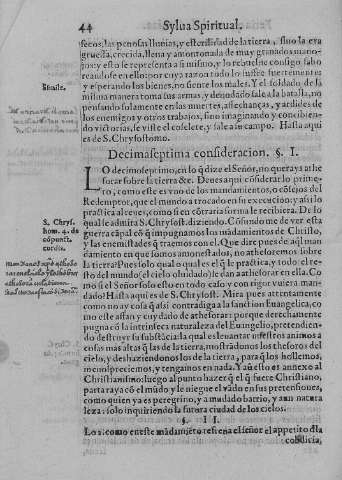 44 Sylua Spiritual.
secos, las penosas lluuias, y esterilidad de la tierra, sino la eva
gruessa, crecida, llena y amontonada de muy granados mano-
jos: y esto se representa a si mismo, y lo rebuelue consigo sabo
reandose en ello: por cuya razon todo lo sufre fuertemente
y esperando los bienes, no siente los males. Y el soldado de la
misma manera toma sus armas, y denodado sale a la batalla, no
pensando solamente en las muertes, assechanças, y ardides de
los enemigos y otros trabajos, sino imaginando y concibien-
do victorias, se viste el coselete, y sale a su campo. Hasta aqui
es de S. Chrysostomo.
Simile.
Decimaseptima consideracion. §. I.
LO decimoseptimo, en lo q̃ dize el Señor, no querays athe
sorar sobre la tierra &c. Deues aqui cōsiderar lo prime-
ro, como este es vno de los mandamientos, o cōsejos del
Redemptor, que el mundo a trocado en su execucion; y assi lo
practica al reues, como si en cōtrario forma le recibiera. De lo
qual se admira S. Chrysost. diziendo. Cōfundo me de ver esta
guerra cāpal cō q̃ impugnamos los mādamientos de Christo,
y las enemistades q̃ traemos con el. Que dire pues de aq̃l man
damiento en que somos amonestados, no athesoremos sobre
la tierra? Pues solo qual o quales el q̃ le practica, y todo el re-
sto del mundo (el cielo oluidado) se dan a athesorar en ella. Co
mo si el Señor solo esto en todo caso y con rigor vuiera man-
dado? Hasta aqui es de S. Chrysost. Mira pues attentamente
como no ay cosa q̃ assi contradiga a la sanction Euangelica, co
mo este affan y cuydado de athesorar: porque derechamente
pugna cō la intrinseca naturaleza del Euangelio, pretendien-
do destruyr su substācia: la qual es leuantar nuestros animos a
cosas mas altas q̃ las de la tierra, mostrādonos los thesoros del
cielo, y deshaziendonos los de la tierra, para q̃ los hollemos,
menospreciemos, y tengamos en nada. Y aū esto es annexo al
Christianismo: luego al punto hazer q̃ el q̃ fuere Christiano,
parta raya cō el mūdo y le niegue el vado en sus pretensiones,
como quien ya es peregrino, y a mudado barrio, y aun natura
leza: solo inquiriendo la futura ciudad de los cielos.
S. Chrys.
hom. 4. de
cōpunct.
cordis.
§. II.
Lo 2. como en este mādamiēto refrena el señor el appetito d̃la
cobdicia,